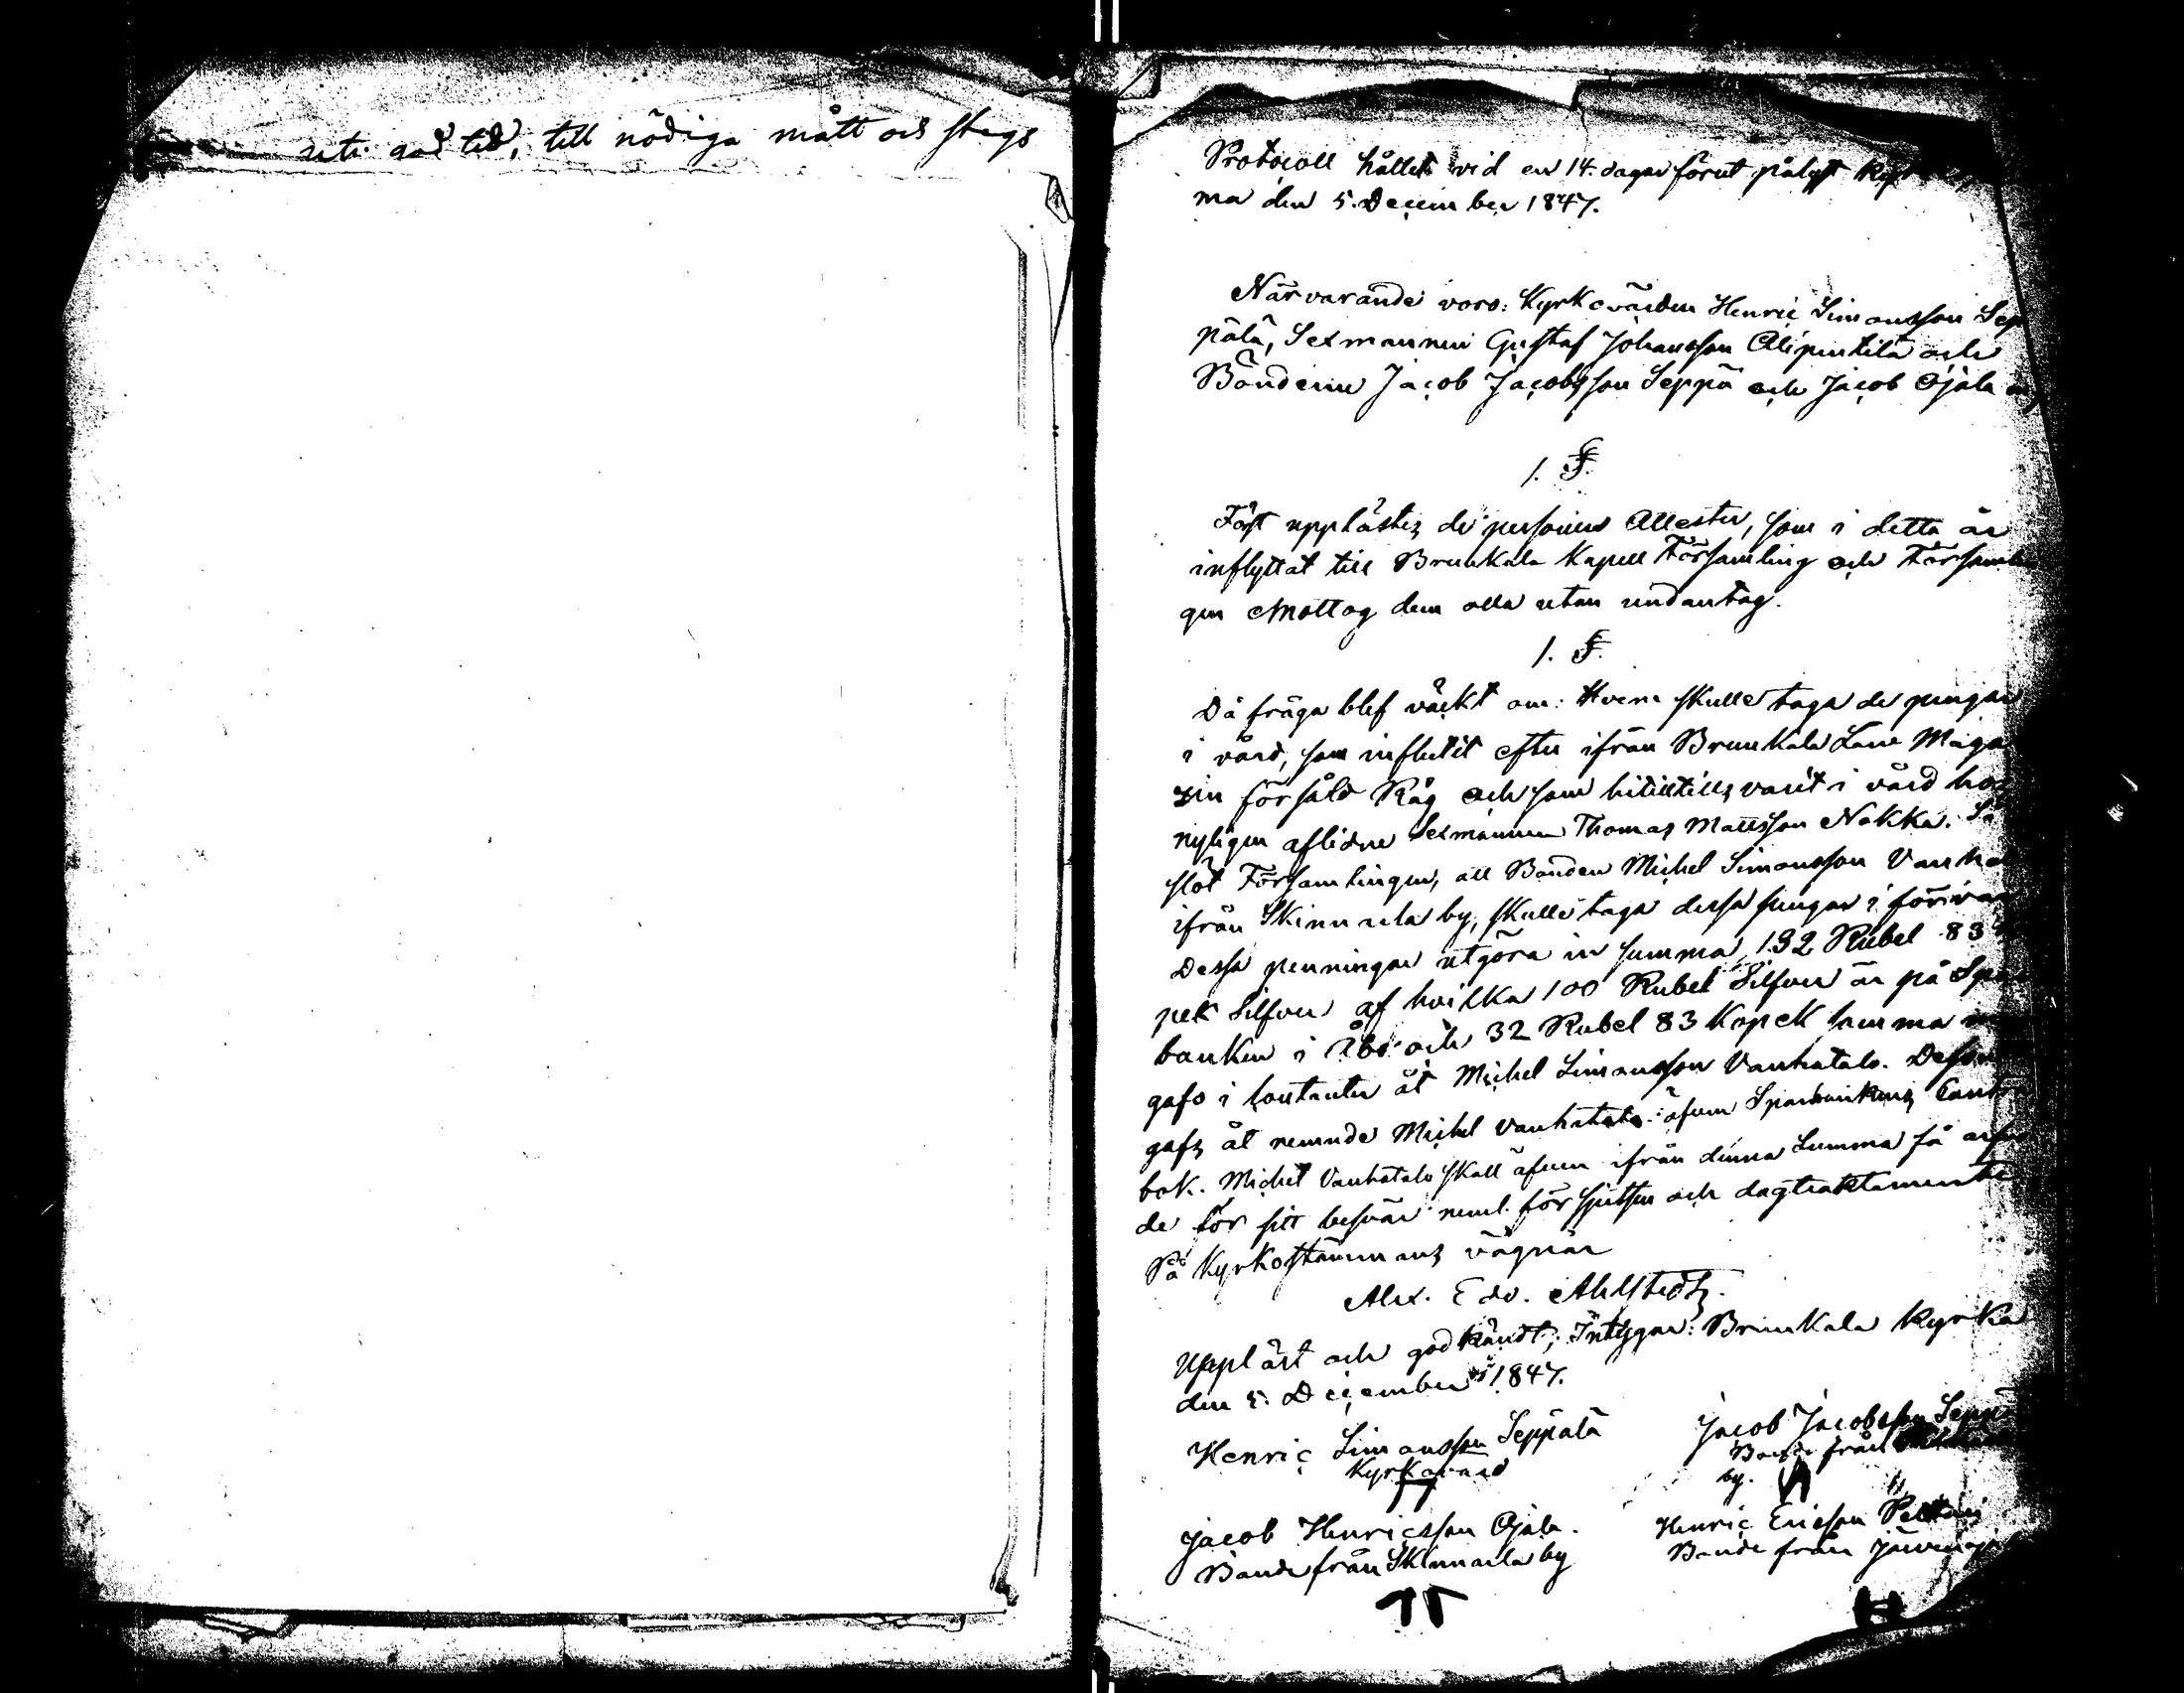 god tid, till nödiga mått och stegs
Protocoll hållet vid en 14. dagar förut pålyst
ma den 5. December 1847.
Närvarande voro: Kyrkovärden Henric Simonsson Sep
pälä, Sexmannen Gustaf Johansson Alipentilä och
Bönderne Jacob Jacobsson Seppä och Jacob Ojala
1. §.
Först upplästes de personers Attester, som i detta år
inflyttat till Brunkala Kapell Församling och Församlin
gen Mottog dem alla utan undantag.
1. §.
Då fråga blef väckt om: Hvem skulle taga de pengar
i vård, som influtit efter ifrån Brunkala Låne Maga
zin försåld Råg och som hitintills varit i vård hos
nyligen aflidne Sexmannen Thomas Mattsson Nokka. Så
slöt Församlingen, att Bonden Michel Simonsson Vanha
ifrån Skinnarla by, skulle taga dessa pengar i förvar
Dessa penningar utgöra in summa, 132 Rubel 83
pek Silfver af hvilka 100 Rubel Silfver är på Spar
banken i Åbo och 32 Rubel 83 Kopek samma
gafs i contanter åt Michel Simonsson Vanhatalo.
gafs åt nemnde Michel Vanhatalo äfven Sparbankens Cont
bok. Michel Vanhatalo skall äfven ifrån denna Summa få
de för sitt besvär neml. för skjutsen och dagtraktamente
På Kyrkostämmans vägnar
Alex. Edv. Ahlstedt.
Uppläst och godkändt; Intygar: Brunkala Kyrka
den 5. December 1847.
Henric Simonsson Seppälä Jacob Jacobsson Seppä
Kyrkovärd Bonde från
by.
Jacob Henricsson Ojala. Henric Ericsson
Bonde från Skinnarla by Bonde från